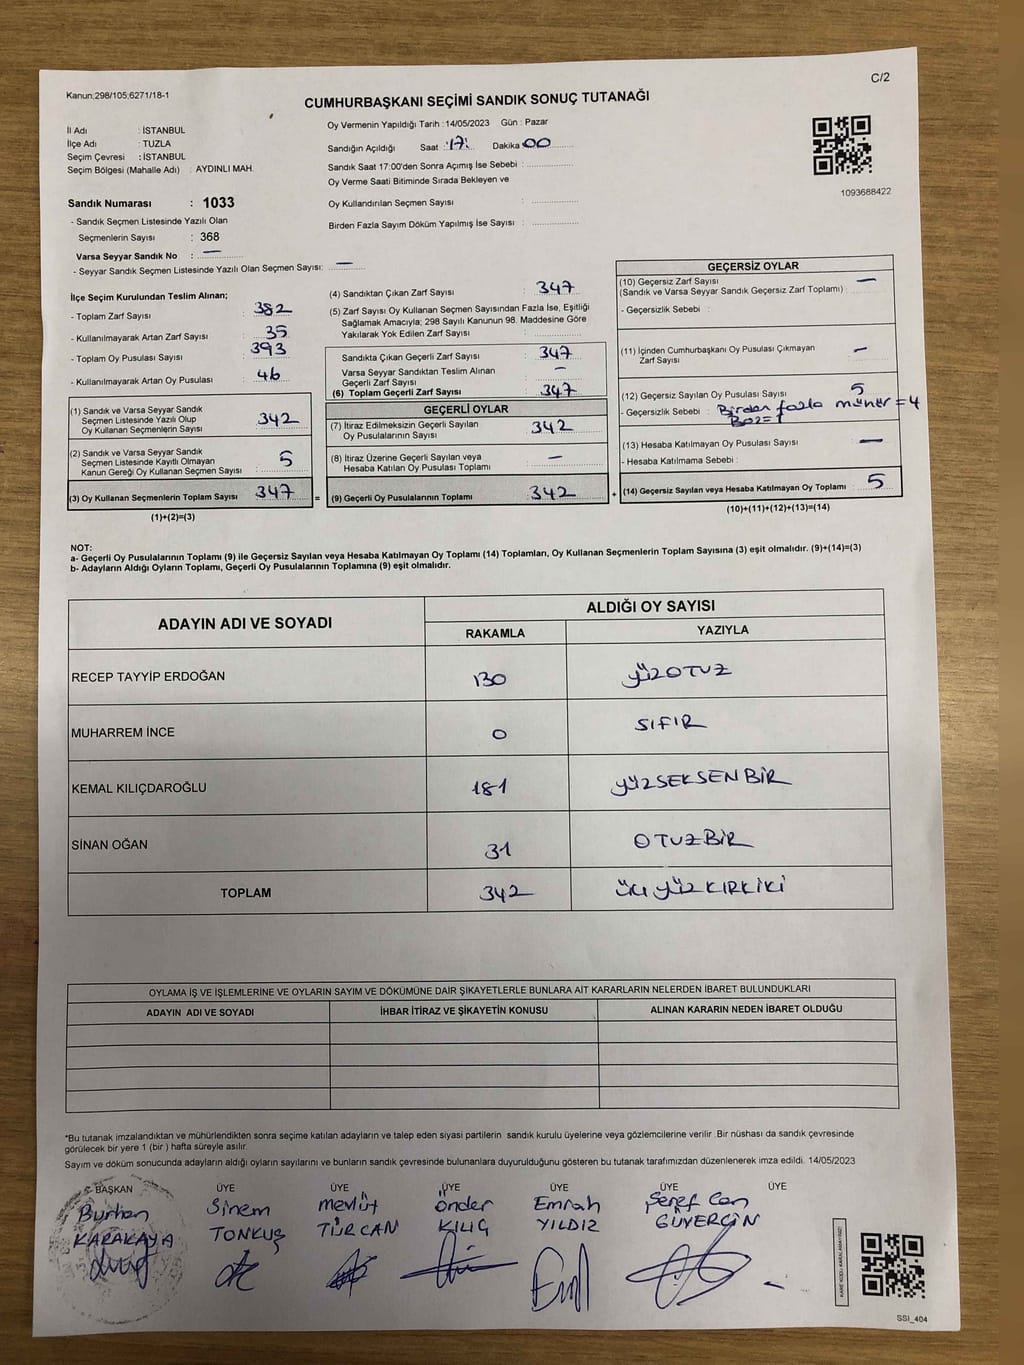 C/2
Kanun;298/105;6271/18-1
CUMHURBAŞKANI SEÇİMİ SANDIK SONUÇ TUTANAĞI
İl Adı : İSTANBUL
İlçe Adı : TUZLA
Seçim Çevresi : İSTANBUL
Seçim Bölgesi (Mahalle Adı) : AYDINLI MAH.
Oy Vermenin Yapıldığı Tarih :14/05/2023 Gün : Pazar
Sandığın Açıldığı Saat : 17: Dakika 00
Sandık Saat 17:00'den Sonra Açımış İse Sebebi :
Oy Verme Saati Bitiminde Sırada Bekleyen ve
Oy Kullandırılan Seçmen Sayısı :
Birden Fazla Sayım Döküm Yapılmış İse Sayısı :
1093688422
Sandık Numarası : 1033
- Sandık Seçmen Listesinde Yazılı Olan
Seçmenlerin Sayısı : 368
Varsa Seyyar Sandık No : —
- Seyyar Sandık Seçmen Listesinde Yazılı Olan Seçmen Sayısı: —
İlçe Seçim Kurulundan Teslim Alınan;
- Toplam Zarf Sayısı : 382
- Kullanılmayarak Artan Zarf Sayısı : 35
- Toplam Oy Pusulası Sayısı : 393
- Kullanılmayarak Artan Oy Pusulası : 46
(1) Sandık ve Varsa Seyyar Sandık
Seçmen Listesinde Yazılı Olup
Oy Kullanan Seçmenlerin Sayısı : 342
(2) Sandık ve Varsa Seyyar Sandık
Seçmen Listesinde Kayıtlı Olmayan
Kanun Gereği Oy Kullanan Seçmen Sayısı : 5
(3) Oy Kullanan Seçmenlerin Toplam Sayısı : 347 =
(1)+(2)=(3)
(4) Sandıktan Çıkan Zarf Sayısı : 347
(5) Zarf Sayısı Oy Kullanan Seçmen Sayısından Fazla İse, Eşitliği
Sağlamak Amacıyla; 298 Sayılı Kanunun 98. Maddesine Göre
Yakılarak Yok Edilen Zarf Sayısı :
Sandıkta Çıkan Geçerli Zarf Sayısı : 347
Varsa Seyyar Sandıktan Teslim Alınan
Geçerli Zarf Sayısı : —
(6) Toplam Geçerli Zarf Sayısı : 347
GEÇERLİ OYLAR
(7) İtiraz Edilmeksizin Geçerli Sayılan
Oy Pusulalarının Sayısı : 342
(8) İtiraz Üzerine Geçerli Sayılan veya
Hesaba Katılan Oy Pusulası Toplamı : —
(9) Geçerli Oy Pusulalarının Toplamı : 342 +
GEÇERSİZ OYLAR
(10) Geçersiz Zarf Sayısı
(Sandık ve Varsa Seyyar Sandık Geçersiz Zarf Toplamı) : —
- Geçersizlik Sebebi :
(11) İçinden Cumhurbaşkanı Oy Pusulası Çıkmayan
Zarf Sayısı : —
(12) Geçersiz Sayılan Oy Pusulası Sayısı : 5
- Geçersizlik Sebebi : Birden fazla mühür = 4
Boş = 1
(13) Hesaba Katılmayan Oy Pusulası Sayısı : —
- Hesaba Katılmama Sebebi :
(14) Geçersiz Sayılan veya Hesaba Katılmayan Oy Toplamı : 5
(10)+(11)+(12)+(13)=(14)
NOT:
a- Geçerli Oy Pusulalarının Toplamı (9) ile Geçersiz Sayılan veya Hesaba Katılmayan Oy Toplamı (14) Toplamları, Oy Kullanan Seçmenlerin Toplam Sayısına (3) eşit olmalıdır. (9)+(14)=(3)
b- Adayların Aldığı Oyların Toplamı, Geçerli Oy Pusulalarının Toplamına (9) eşit olmalıdır.
ADAYIN ADI VE SOYADI
ALDIĞI OY SAYISI
RAKAMLA YAZIYLA
RECEP TAYYİP ERDOĞAN 130 YÜZOTUZ
MUHARREM İNCE 0 SIFIR
KEMAL KILIÇDAROĞLU 181 YÜZSEKSENBİR
SİNAN OĞAN 31 OTUZBİR
TOPLAM 342 ÜÇYÜZKIRKİKİ
OYLAMA İŞ VE İŞLEMLERİNE VE OYLARIN SAYIM VE DÖKÜMÜNE DAİR ŞİKAYETLERLE BUNLARA AİT KARARLARIN NELERDEN İBARET BULUNDUKLARI
ADAYIN ADI VE SOYADI İHBAR İTİRAZ VE ŞİKAYETİN KONUSU ALINAN KARARIN NEDEN İBARET OLDUĞU
*Bu tutanak imzalandıktan ve mühürlendikten sonra seçime katılan adayların ve talep eden siyasi partilerin sandık kurulu üyelerine veya gözlemcilerine verilir .Bir nüshası da sandık çevresinde
görülecek bir yere 1 (bir ) hafta süreyle asılır.
Sayım ve döküm sonucunda adayların aldığı oyların sayılarını ve bunların sandık çevresinde bulunanlara duyurulduğunu gösteren bu tutanak tarafımızdan düzenlenerek imza edildi. 14/05/2023
BAŞKAN ÜYE ÜYE ÜYE ÜYE ÜYE ÜYE
Burhan Sinem Mevlüt Önder Emrah Şeref Can
KARAKAYA TONKUŞ TÜRCAN KILIÇ YILDIZ GÜVERCİN
SSI_404